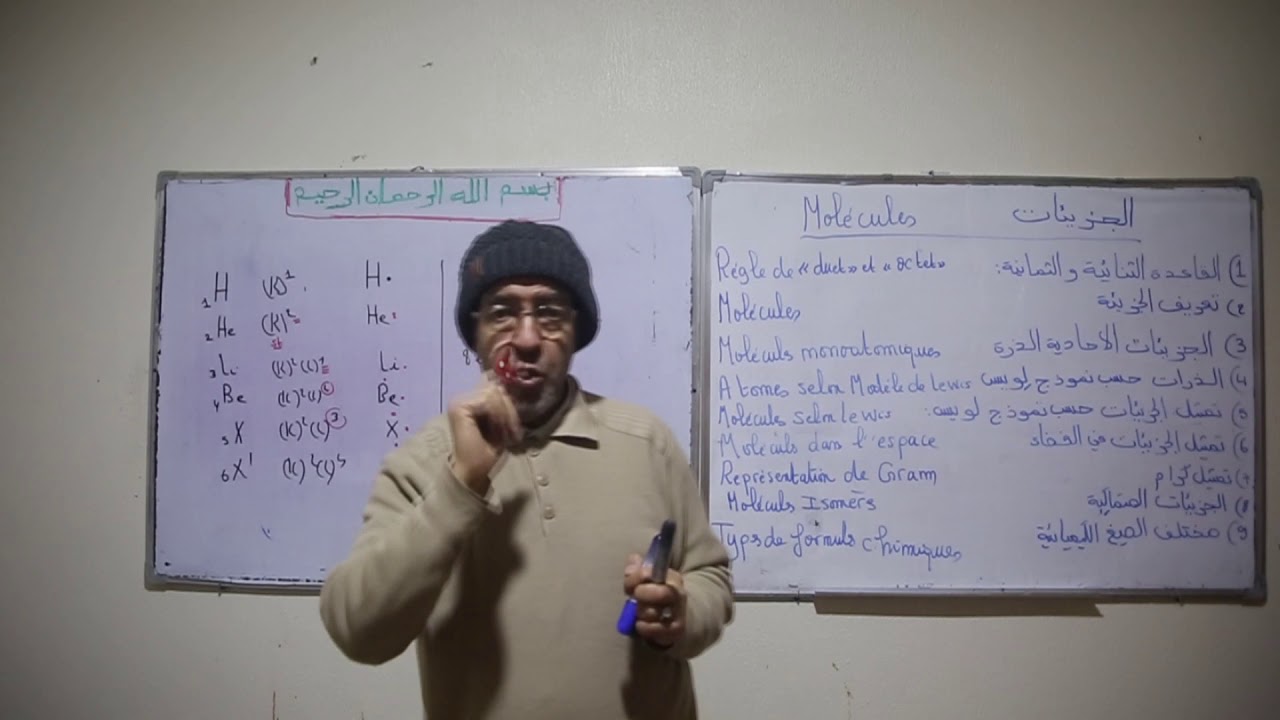 بسم الله الرحمان الرحيم
₁H (K)¹ H·
₂He (K)² He:
₃Li (K)²(L)¹ Li·
₄Be (K)²(L)² Be·
₅X (K)²(L)³ X·
₆X'
Molécules الجزيئات
Régle de «duet» et «octet» 1) القاعدة الثنائية و الثمانية:
Molécules 2) تعريف الجزيئة
Moléculs monoatomiques 3) الجزيئات الأحادية الذرة
Atomes selon Modéle de Lewis 4) الذرات حسب نموذج لويس
Molécules selon lewis 5) تمثيل الجزيئات حسب نموذج لويس:
Moléculs dans l'espace 6) تمثيل الجزيئات في الفضاء
Représentation de Cram 7) تمثيل كرام
Moléculs Isomérs 8) الجزيئات
Typs de formuls chimiques 9) مختلف الصيغ الكيميائية